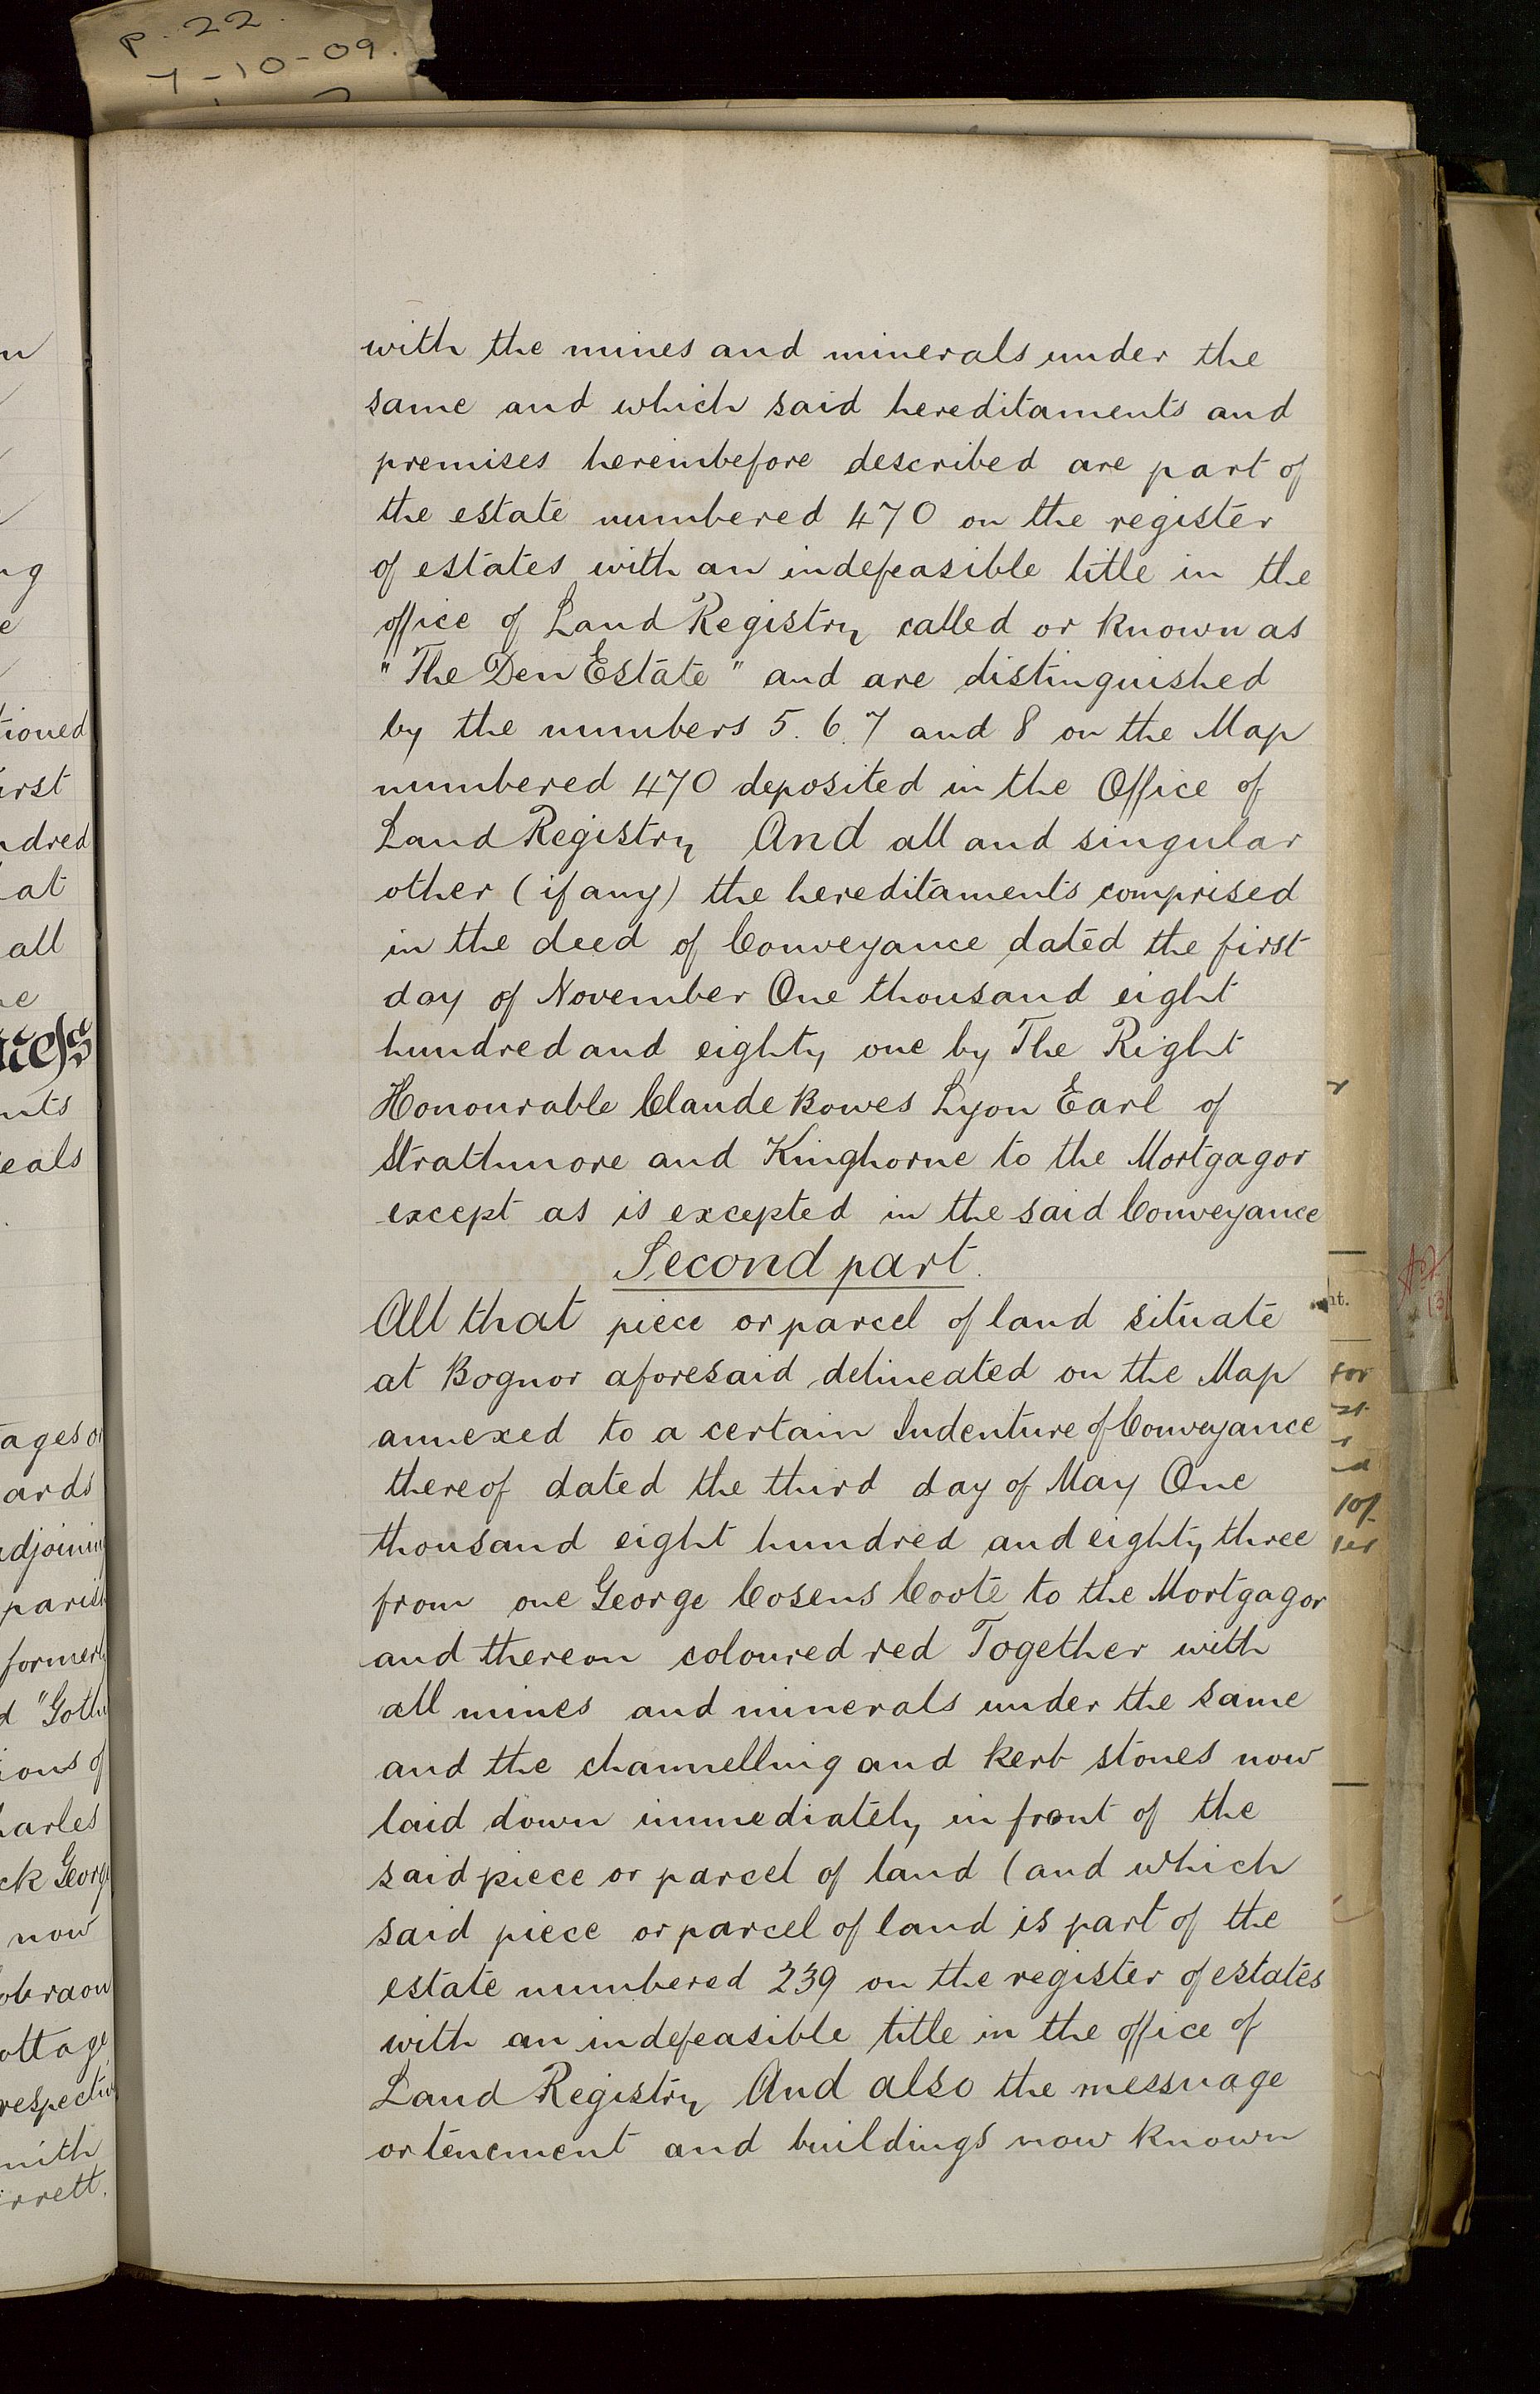 P. 22
7-10-09.
with the mines and minerals under the
same and which said hereditaments and
premises hereinbefore described are part of
the estate numbered 470 on the register
of estates with an indefeasible title in the
office of Land Registry called or known as
"The Den Estate" and are distinguished
by the numbers 5. 6. 7 and 8 on the Map
numbered 470 deposited in the Office of
Land Registry And all and singular
other (if any) the hereditaments comprised
in the deed of Conveyance dated the first
day of November One thousand eight
hundred and eighty one by The Right
Honourable Claude Bowes Lyon Earl of
Strathmore and Kinghorne to the Mortgagor
except as is excepted in the said Conveyance
Second part.
All that piece or parcel of land situate
at Bognor aforesaid delineated on the Map
annexed to a certain Indenture of Conveyance
thereof dated the third day of May One
thousand eight hundred and eighty three
from one George Cosens Coote to the Mortgagor
and thereon coloured red Together with
all mines and minerals under the same
and the channelling and kerb stones now
laid down immediately in front of the
said piece or parcel of land (and which
said piece or parcel of land is part of the
estate numbered 239 on the register of estates
with an indefeasible title in the office of
Land Registry And also the messuage
or tenement and buildings now known